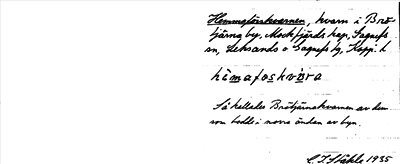 Hemmaforskvarnen, kvarn i Brö-
tjärna by, Mockfjärds kap., Gagnefs
sn, Leksands o Gagnefs tg, Kopp. l.
hèmafoskvàra
Så kallades Brötjärnakvarnen av dem
som bodde i norra änden av byn.
C. J. Ståhle 1935